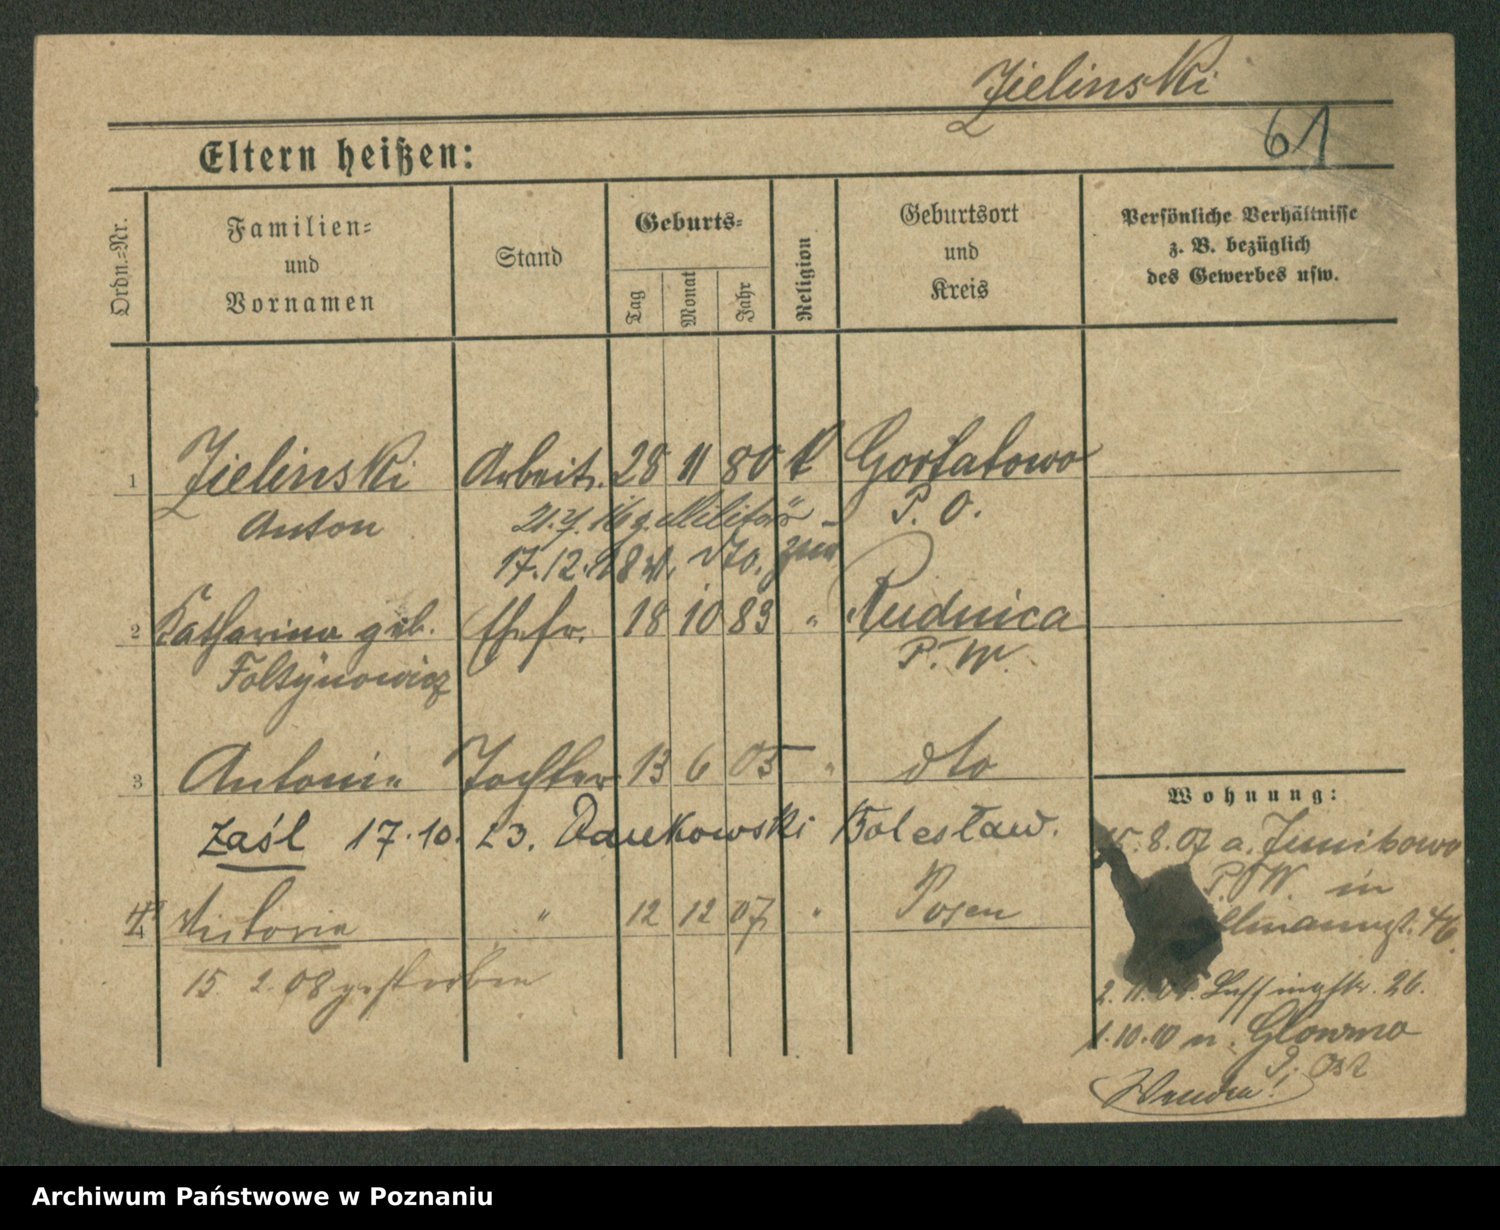 Zielinski
61
Eltern heißen:
Ordn.-Nr.
Familien-
und
Vornamen
Stand
Geburts-
Tag
Monat
Jahr
Religion
Geburtsort
und
Kreis
Persönliche Verhältnisse
z. B. bezüglich
des Gewerbes usw.
1 Zielinski Arbeit. 28 11 80 k Gortatowo
Anton 21.7.16 z. Militär P. O.
17.12.18 v. dto. zur
2 Katharina geb. Ehefr. 18 10 83 " Rudnica
Foltynowicz P. W.
3 Antonia Tochter 13 6 05 " dto
Zaśl 17.10. 23. Bolesław.
4 Victoria " 12 12 07 " Posen
15. 2. 08 gestorben
Wohnung:
15.8.07 a. Junikowo
P. W. in
46.
2.11. Lessingstr. 26.
1.10.10 n. Glowno
P. Ost
Wenden!
Archiwum Państwowe w Poznaniu